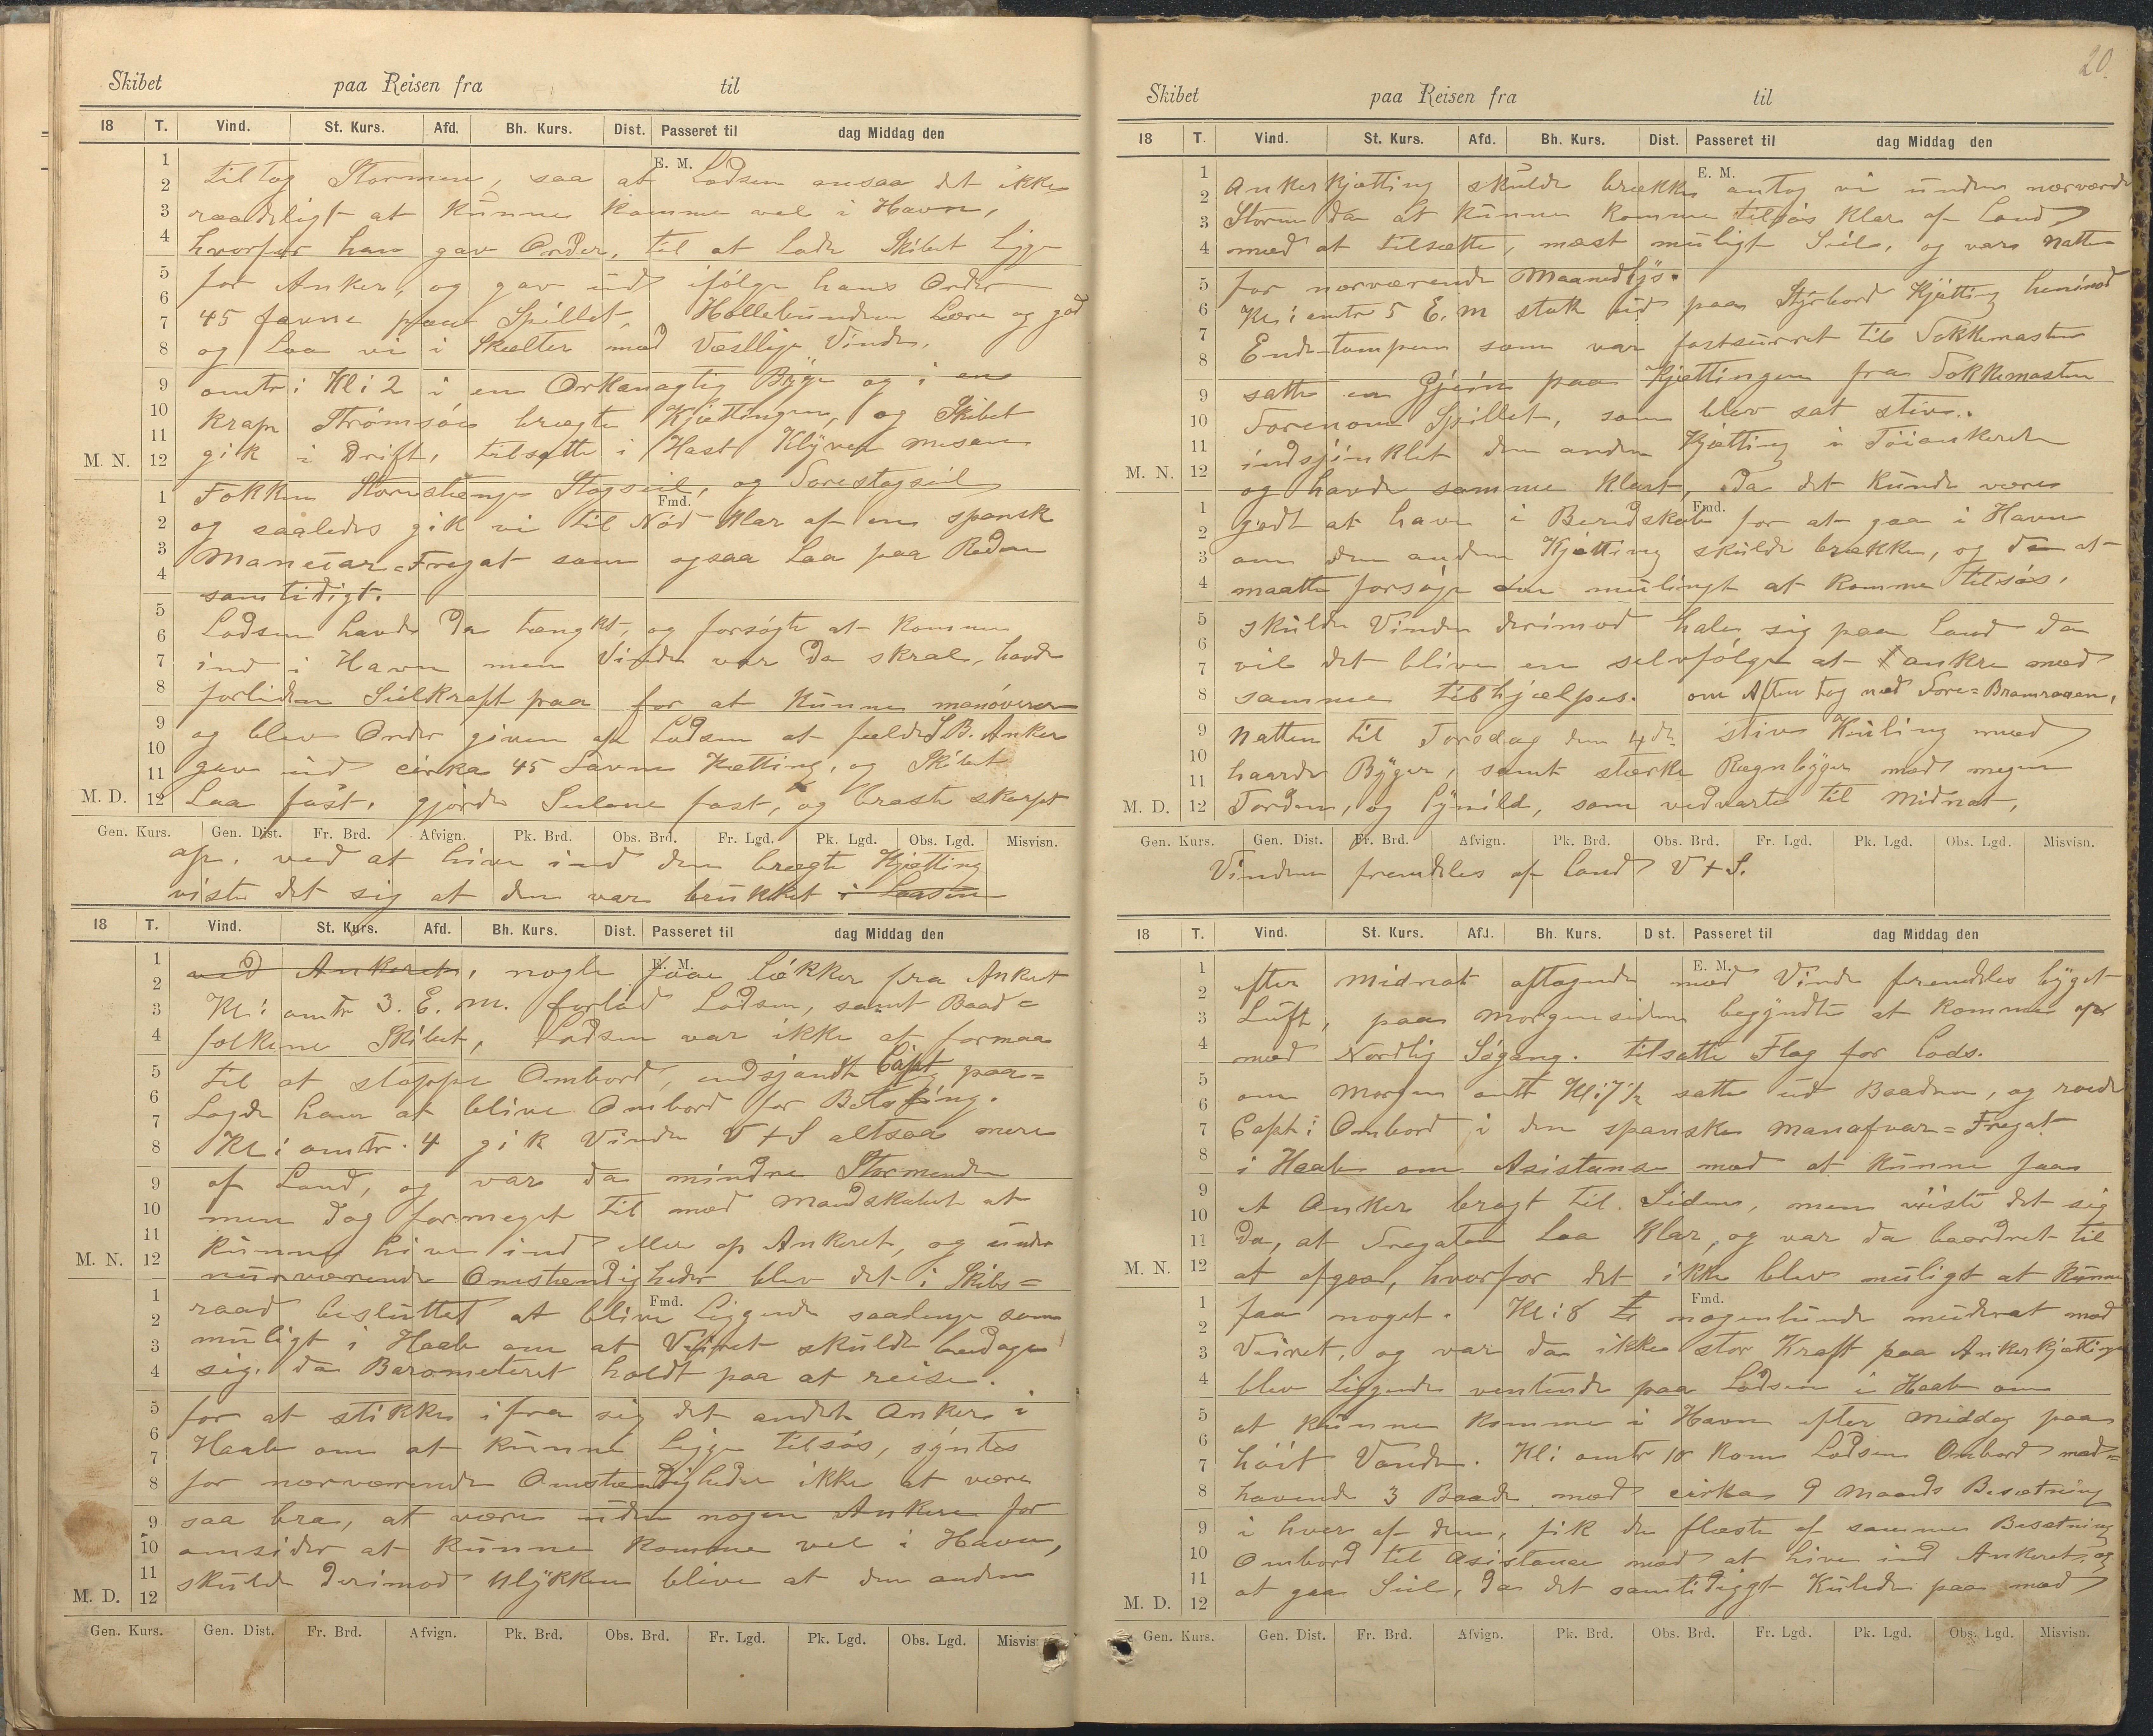 Skibet paa Reisen fra til
18 T. Vind. St. Kurs. Afd. Bh. Kurs. Dist. Passeret til dag Middag den
E. M.
tiltog Stormen, saa at Lodsen ansaa det ikke
raadeligt at kunne komme vel i Havn,
hvorfor han gav Order, til at lade Skibet ligge
for Anker, og gav ud ifølge hans Order
45 favne paa Spillet, Hollebunden Lære og god
og Laa vi i Skælter med Vestlige Vinde,
omtr: Kl: 2 i en Orkanagtig Byge og i en
krap Strømsøe brægte Kjættingen, og Skibet
gik i Drift, tilsatte i Hast Klyver Mesan
M. N.
Fokken Storestænge Stagseil, og Forestagseil
Fmd.
og saaledes gik vi til Nød klar af en spansk
Maneuar=Fregat som ogsaa Laa paa Reden
samtidigt.
Lodsen havde da tænkt, og forsøgte at komme
ind i Havn men Vinden var da skral, havde
forliden Seilkraft paa for at kunne manøverer
og blev Order given af Lodsen at fælde S.B. Anker
gav ud cirka 45 Favne Kætting, og Skibet
M. D. Laa fast, gjorde Seilene fast, og braste skarpt
Gen. Kurs. Gen. Dist. Fr. Brd. Afvign. Pk. Brd. Obs. Brd. Fr. Lgd. Pk. Lgd. Obs. Lgd. Misvisn.
op. ved at hive ind den brægte Kjætting
viste det sig at den var brukket i Laasen
18 T. Vind. St. Kurs. Afd. Bh. Kurs. Dist. Passeret til dag Middag den
E. M.
ved Ankeret, nogle faae Løkker fra Anket
Kl: omtr 3. E. M. forlod Lodsen, samt Baad=
folkene Skibet, Lodsen var ikke at formaa
til at stoppe Ombord, endsjøndt Capt paa=
Lagde ham at blive Ombord for Betaling.
Kl: omtr. 4 gik Vinden V t S altsaa mere
af Land, og var da mindre Stormende
men dog formeget til med Mandskabet at
kunne hive ind eller op Ankeret, og under
M. N.
nurværende Omstændigheder blev det i Skibs=
Fmd.
raad besluttet at blive Liggende saalenge som
muligt i Haab om at Veiret skulde bedage
sig. da Barometeret holdt paa at reise.
for at stikke ifra sig det andet Anker i
Haab om at kunne ligge tilsøs, syntes
for nærværende Omstændigheder ikke at være
saa bra, at være uden nogen Anker for
omsider at kunne komme vel i Havn,
M. D. skulde derimod Ulykken blive at den anden
Gen. Kurs. Gen. Dist. Fr. Brd. Afvign. Pk. Brd. Obs. Brd. Fr. Lgd. Pk. Lgd. Obs. Lgd. Misvisn.
20.
Skibet paa Reisen fra til
18 T. Vind. St. Kurs. Afd. Bh. Kurs. Dist. Passeret til dag Middag den
E. M.
Ankerkjætting skulde brække antog vi under nærværende
Storm da at kunne komme tilsøs klar af Land
med at tilsætte, mæst muligt Seil, og var Natten
for nærværende Maanedlys.
Kl: omtr 5 E. M stak ud paa Styrbord Kjætting henimod
Ende-tampen som var fastsurret til Fokkemasten
satte en Gjein paa Kjættingen fra Fokkemasten
Forenom Spillet, som blev sat stiv.
indsjinklet den anden Kjætting i Töiankeret
M. N.
og havde samme klart, da det kunde være
Fmd.
godt at have i Beredskab for at gaa i Havn
om den anden Kjætting skulde brække, og da at
maatte forsøge om mulingt at komme tilsøs,
skulde Vinden derimod hale sig paa Land da
vil det blive en selvfölge at ankre med
samme tilhjælpes. om Aften tog ned Fore=Bramraaen,
Natten til Torsdag den 4de stiv Kuling med
haarde Byger, samt stærke Regnbyger med megen
M. D. Torden, og Lynild, som vedvarte til Midnat,
Gen. Kurs. Gen. Dist. Fr. Brd. Afvign. Pk. Brd. Obs. Brd. Fr. Lgd. Pk. Lgd. Obs. Lgd. Misvisn.
Vinden fremdeles af Land V t S.
18 T. Vind. St. Kurs. Afd. Bh. Kurs. Dist. Passeret til dag Middag den
E. M.
efter Midnat aftagende med Vinde fremdeles byget
Luft, paa Morgensiden begyndte at komme op
med Nordlig Søgang. tilsatte Flag for Lods.
om Morgen omtr Kl: 7 1/2 satte ud Baaden, og roede
Capt: Ombord i den spanske Manafvar=Fregat
i Haab om Asistanse med at kunne faa
et Anker bragt til Siden, men viiste det sig
da, at Fregaten Laa klar, og var da baordret til
M. N.
at afgaa, hvorfor det ikke blev muligt at kunne
Fmd.
faa noget. Kl: 8 nogenlunde muderat med
Veiret, og var da ikke stor Kraft paa Ankerkjættinge
blev Liggende ventende paa Lodsen i Haab om
at kunne komme i Havn efter Middag paa
höit Vande. Kl: omtr 10 kom Lodsen Ombord med=
havende 3 Baade med cirka 9 Mands Besætning
i hver af dem, fik de fleste af samme Besætning
Ombord til Asistance med at hive ind Ankeret, og
M. D. at gaa Seil, da det samtidiggt Kulede paa med
Gen. Kurs. Gen. Dist. Fr. Brd. Afvign. Pk. Brd. Obs. Brd. Fr. Lgd. Pk. Lgd. Obs. Lgd. Misvisn.